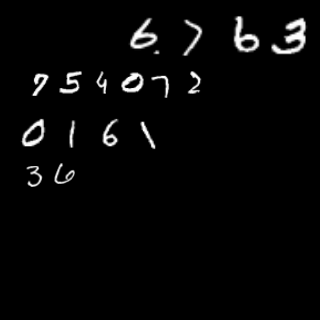 6 7 6 3
7 5 4 0 7 2
0 1 6 1
3 6